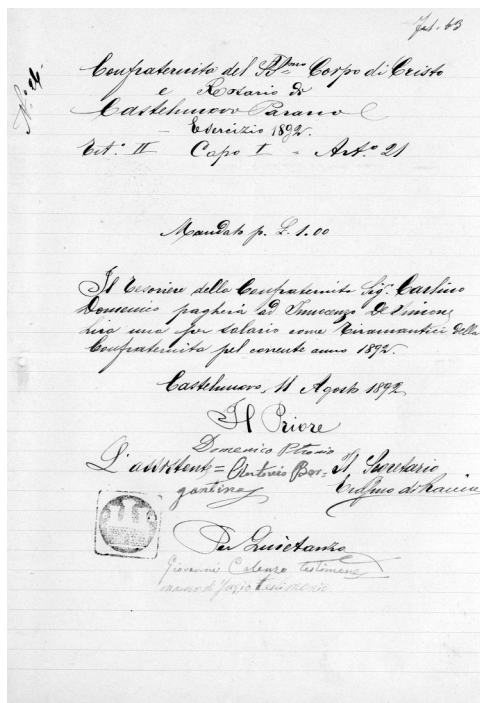 Fol. 63
N.º 26.
Confraternita del SS.mo Corpo di Cristo
e Rosario di
Castelnuovo Parano
Esercizio 1892.
Tit.º II Capo I = Art.º 21
Mandato p. L. 1.00
Il Tesoriere della Confraternita Sig.r Carlino
Domenico pagherà ad Innocenzo De Simone
lira una per salario come Tiramantici della
Confraternita pel corrente anno 1892.
Castelnuovo, 11 Agosto 1892
Il Priore
Domenico
L'assistente = Antonio Ber= Il Secretario
gantino
Per Quietanza
Giovanni testimone
testimonio